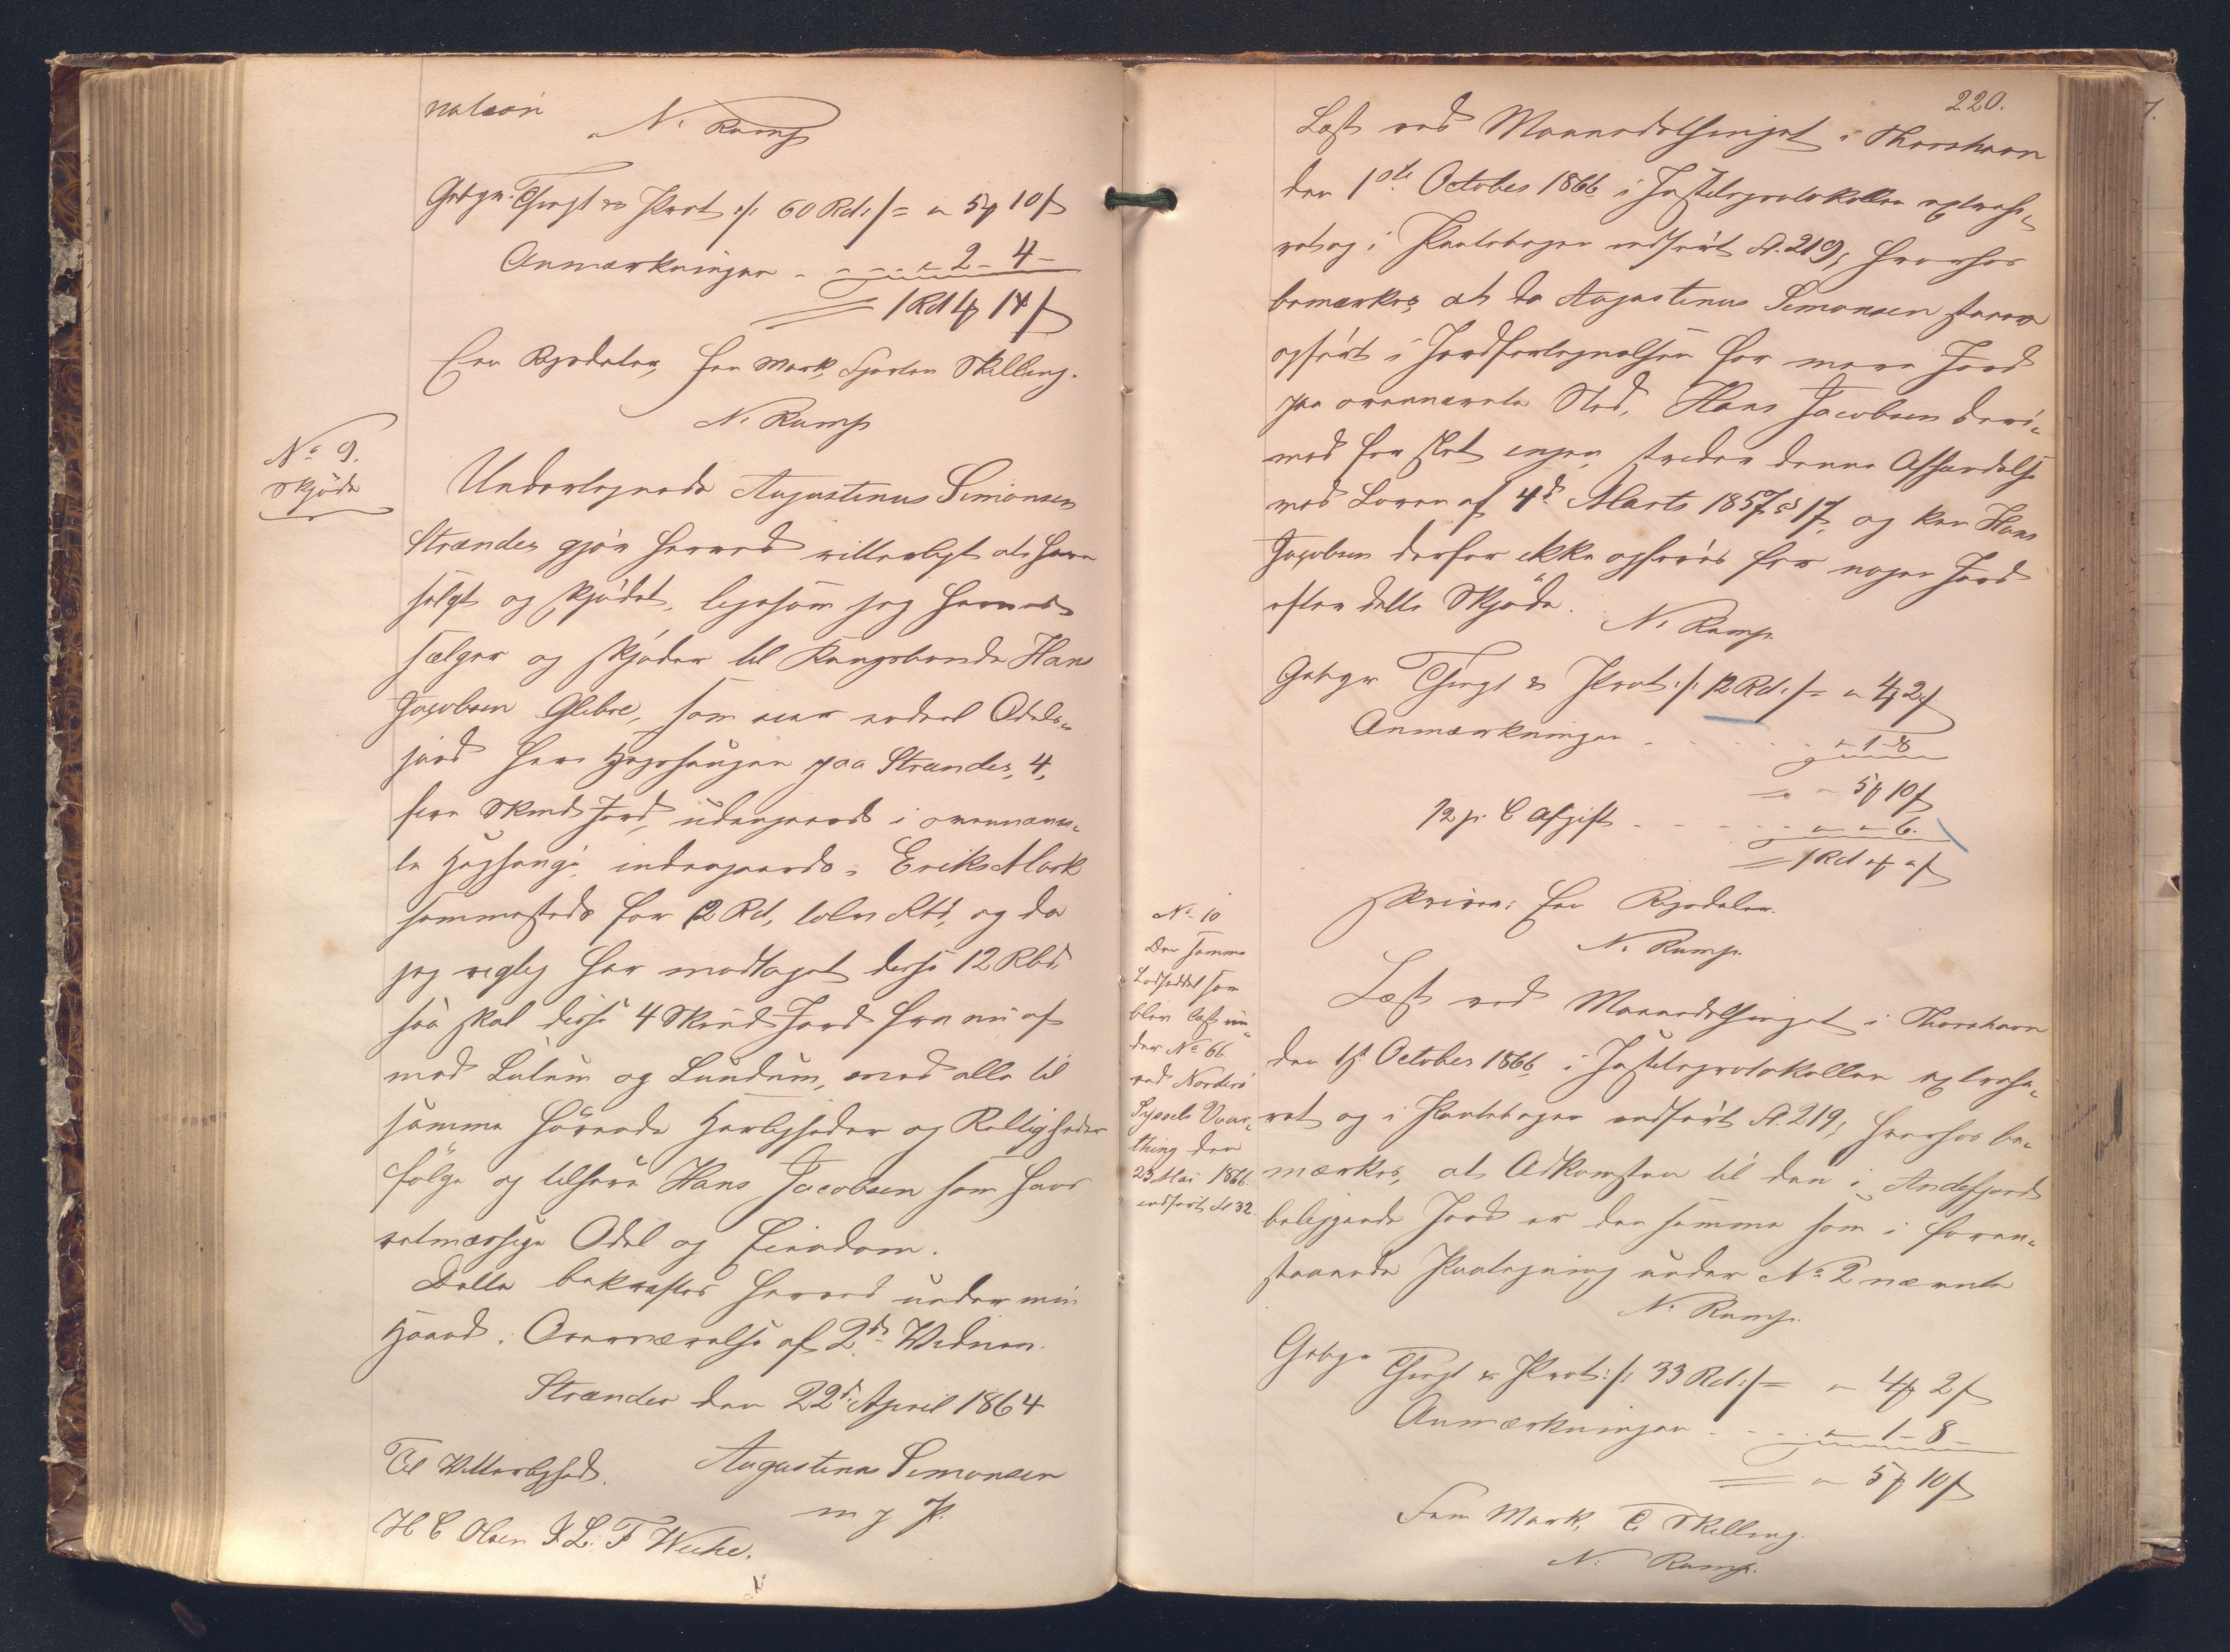 nation
N. Rump
Gebyr. Thingl & Prot :/: 60 Rd:/= " 5 10
Anmærkningen - - - - " 2 - 4 -
1 Rd 14
Een Rigsdaler, een Mark, Fjorten Skilling.
N. Rump
No 9.
Skjöde
Undertegnede Augustinus Simonsen
Strænder gjör herved vitterligt at have
solgt og skjödet, ligesom jeg herved
sælger og skjöder til Kongsbonde Hans
Jacobsen Glibre, som
jord paa Strænder, 4,
fire Skind Jord, udengaards i ovennævn-
te indengaards i Eriks Mark
sammesteds for 12 Rd, tolv Rbd, og da
jeg rigtig har modtaget disse 12 Rbd.
saa skal disse 4 Skind Jord fra nu af
med Lutum og Lundum, med alle til
samme hörende Herligheder og Rettigheder
fölge og tilhöre Hans Jacobsen som hans
retmæssige Odel og Eiendom.
Dette bekræftes herved under min
Haand i Overværelse af 2de Vidner.
Strænder den 22d April 1864
Til Vitterlighed. Augustinus Simonsen
m p.
H C Olsen I. L. F Weihe.
220.
Læst ved Maanedsthinget i Thorshavn
den 1ste October 1866 i Justitsprotokollen extrahe-
ret og i Pantebogen indfört A. 219, hvorhos
bemærkes, at da Augustinus Simonsen staaer
opfört i Jordfortegnelsen for mere Jord
paa ovennævnte Sted, Hans Jacobsen deri-
mod for slet ingen, strider denne Afhændelse
mod Loven af 4d Marts 1857 § 17, og kan Hans
Jacobsen derfor ikke opföres for nogen Jord
efter dette Skjöde.
N. Rump.
Gebyr Thingl & Prot:/: 12 Rd:/= " 4 2
Anmærkningen - - - " 1 - 8
" 5 10
1/2 p. C Afgift - - - " " 6.
1 Rd " "
skriver Een Rigsdaler.
N. Rump.
No 10
Den samme
som
blev læst un-
der No 66
ved Norderö
Syssels Vaar-
thing den
23 Mai 1866.
indfört A 32.
Læst ved Maanedsthinget i Thorshavn
den 1st October 1866 i Justitsprotokollen extrahe-
ret og i Pantebogen indfört A. 219, hvorhos be-
mærkes, at Adkomsten til den i Andefjord
beliggende Jord er den samme som i foran-
staaende Paategning under No 2 nævnte
N. Rump.
Gebyr Thingl & Prot:/: 33 Rd:/= " 4 2
Anmærkningen - - - " 1 - 8 -
" 5 10
Fem Mark, Ti Skilling.
N. Rump.